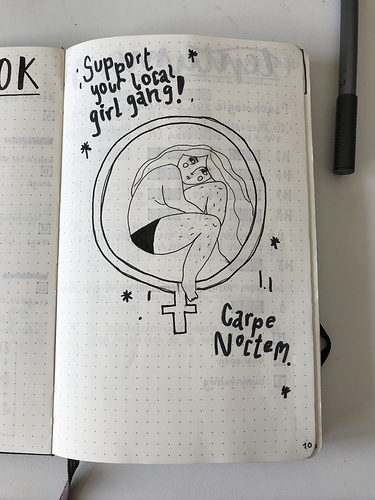 OK
Support
your local
girl gang!
Carpe
Noctem.
10